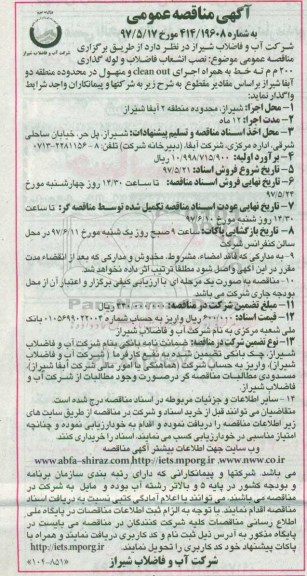 آگهی مناقصه عمومی
به شماره ۴۱۴/۱۹۶۰۸ مورخ ۹۷/۵/۱۷
شرکت آب و فاضلاب شیراز
شرکت آب و فاضلاب شیراز در نظر دارد از طریق برگزاری
مناقصه عمومی موضوع: نصب انشعاب فاضلاب و لوله گذاری
۲۰۰ م م تـه خـط به همراه اجرای clean out و منهول در محدوده منطقه دو
آبفا شیراز براساس مقادیر مقطوع به شرح زیر به شرکتها و پیمانکاران واجد شرایط
واگذار نماید:
۱- محل اجرا: شیراز، محدوده منطقه ۲ آبفا شیراز
۲- مدت اجرا: ۱۲ ماه
۳- محل اخذ اسناد مناقصه و تسلیم پیشنهادات: شیراز، پل حر، خیابان ساحلی
شرقی، اداره مرکزی، شرکت آبفا، (دبیرخانه شرکت) تلفن ۸-۳۲۲۸۱۱۵۶-۰۷۱۳
۴- برآورد اولیه: ۱۰/۹۹۸/۷۱۵/۹۰۰ ریال
۵- تاریخ شروع فروش اسناد: ۹۷/۵/۲۱
۶- تاریخ نهایی فروش اسناد مناقصه: تا ساعت ۱۴/۳۰ روز چهارشنبه مورخ
۹۷/۵/۲۴
۷- تاریخ نهایی عودت اسناد مناقصه تکمیل شده توسط مناقصه گر: تا ساعت
۱۴/۳۰ روز شنبه مورخ ۹۷/۶/۱۰
۸- تاریخ بازگشایی پاکات: ساعت ۹ صبح روز یک شنبه مورخ ۹۷/۶/۱۱ در محل
سالن کنفرانس شرکت
۹- به مدارکی که فاقد امضاء، مشروط، مخدوش و مدارکی که بعد از انقضاء مدت
مقرر در این آگهی واصل شود مطلقا ترتیب اثر داده نخواهد شد.
۱۰- مناقصه به صورت یک مرحله ای با ارزیابی کیفی برگزار و اعتبار آن از محل
بودجه جاری شرکت می باشد.
۱۱- مبلغ تضمین شرکت در مناقصه: ریال
۱۲- قیمت اسناد: ۶۰۰/۰۰۰ ریال واریز به حساب شماره ۰۱۰۵۶۹۹۰۲۲۰۰۳ بانک
ملی شعبه مرکزی به نام شرکت آب و فاضلاب شیراز
۱۳- نوع تضمین شرکت در مناقصه: ضمانت نامه بانکی بنام شرکت آب و فاضلاب
شیراز، چـک بانکی تضمین شـده به نفـع کارفرما (شـرکت آب و فاضلاب
شیراز)، واریز به حساب شرکت (هماهنگی با امور مالی شرکت آبفا شیراز)،
مسـدودی مطالبـات مناقصـه گر درصـورت وجود مطالبـات از شـرکت آب و
فاضلاب شیراز.
۱۴- سایر اطلاعات و جزئیات مربوطه در اسناد مناقصه درج شده است.
متقاضیان می توانند قبل از خرید اسناد و شرکت در مناقصه از طریق سایت های
زیر اطلاعات مناقصه را دریافت نموده و اقدام به خودارزیابی نموده و چنانچه
امتیاز مناسبی در خودارزیابی کسب می نمایند، اسناد را خریداری کنند.
وب سایت جهت اطلاعات بیشتر آگهی مناقصه
www.abfa-shiraz.com,http://iets.mporg.ir ,www.nww.co.ir
می باشد. شرکتها و پیمانکارانی که دارای رتبه بندی سازمان برنامه
و بودجه کشور در پایه ۵ و بالاتر رشته آب بوده و مایل به شرکت در
مناقصه می باشند، می توانند با اعلام آمادگی کتبی نسبت به دریافت اسناد
مناقصه اقدام نمایند. با توجه به الزام ثبت اطلاعات مناقصات در پایگاه ملی
اطلاع رسانی مناقصات کلیه شرکت کنندگان در مناقصه می بایست در
پایگاه مذکور به آدرس ذیل ثبت نام و کد کاربری دریافت نمایند و همراه با
پاکات پیشنهاد خود کد کاربری را تحویل نمایند. http://iets.mporg.ir
شرکت آب و فاضلاب شیراز